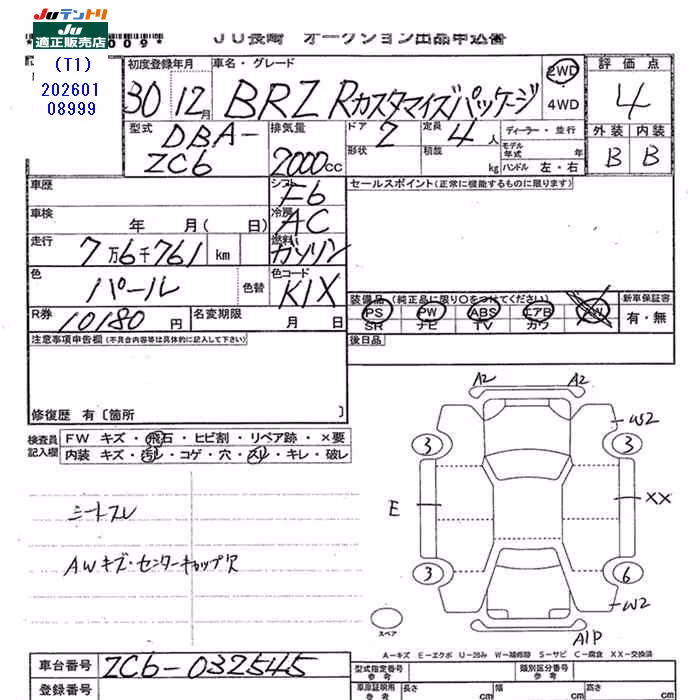 JUテントリ
JU
適正販売店
009*
JU長崎 オークション出品申込書
(T1)
202601
08999
初度登録年月
30年12月
車名・グレード
BRZ Rカスタマイズパッケージ
2WD
4WD
評価点
4
外装 内装
B B
型式
DBA-
ZC6
排気量
2000cc
ドア
2
定員
4人
形状
積載
kg
ディーラー・並行
モデル年式 年
ハンドル 左・右
車歴
シフト
F6
セールスポイント(正常に機能するものに限ります)
車検
年 月( 日)
冷房
AC
走行
7万6千761 km
燃料
ガソリン
色
パール
色替
色コード
K1X
装備品(純正品に限り○をつけてください)
PS PW ABS エアB AW
SR ナビ TV カワ
新車保証書
有・無
R券
10180円
名変期限
月 日
注意事項申告欄(不具合内容等は具体的に記入して下さい)
後日品
修復歴 有〔箇所 〕
検査員記入欄
FW キズ・飛石・ヒビ割・リペア跡・×要
内装 キズ・汚レ・コゲ・穴・スレ・キレ・破レ
シートスレ
AWキズ・センターキャップ欠
A2 A2
3 3 W2
E XX
3 6
W2
A1P
スペア
A-キズ E-エクボ U-凹み W-補修跡 S-サビ C-腐食 XX-交換済
車台番号
ZC6-032545
登録番号
型式指定番号
類別区分番号
車庫証明用
長さ cm
幅 cm
高さ cm